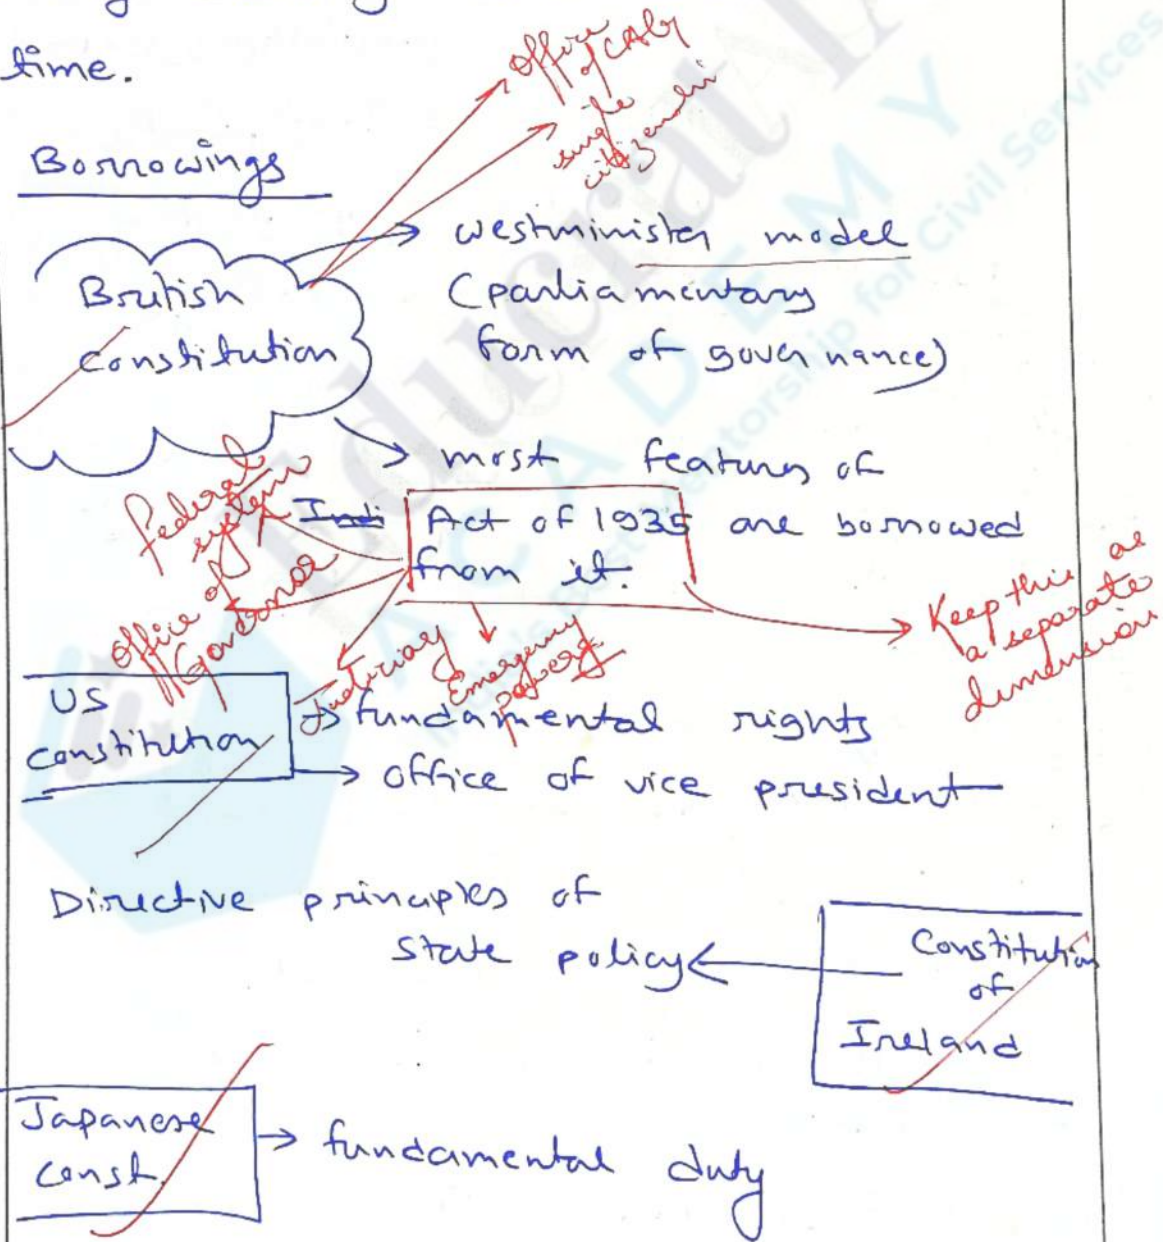 time.
Office
of CAG
single
citizenship
Borrowings
British
Constitution
westminister model
(parliamentary
form of governance)
most features of
Act of 1935 are borrowed
from it.
Federal
system
Office of
Governor
Judiciary
Emergency
powers
Keep this as
a separate
dimension
US
constitution
fundamental rights
office of vice president
Directive principles of
state policy
Constitution
of
Ireland
Japanese
const.
fundamental duty
Educrat
ACADEMY
Mentorship for Civil Services